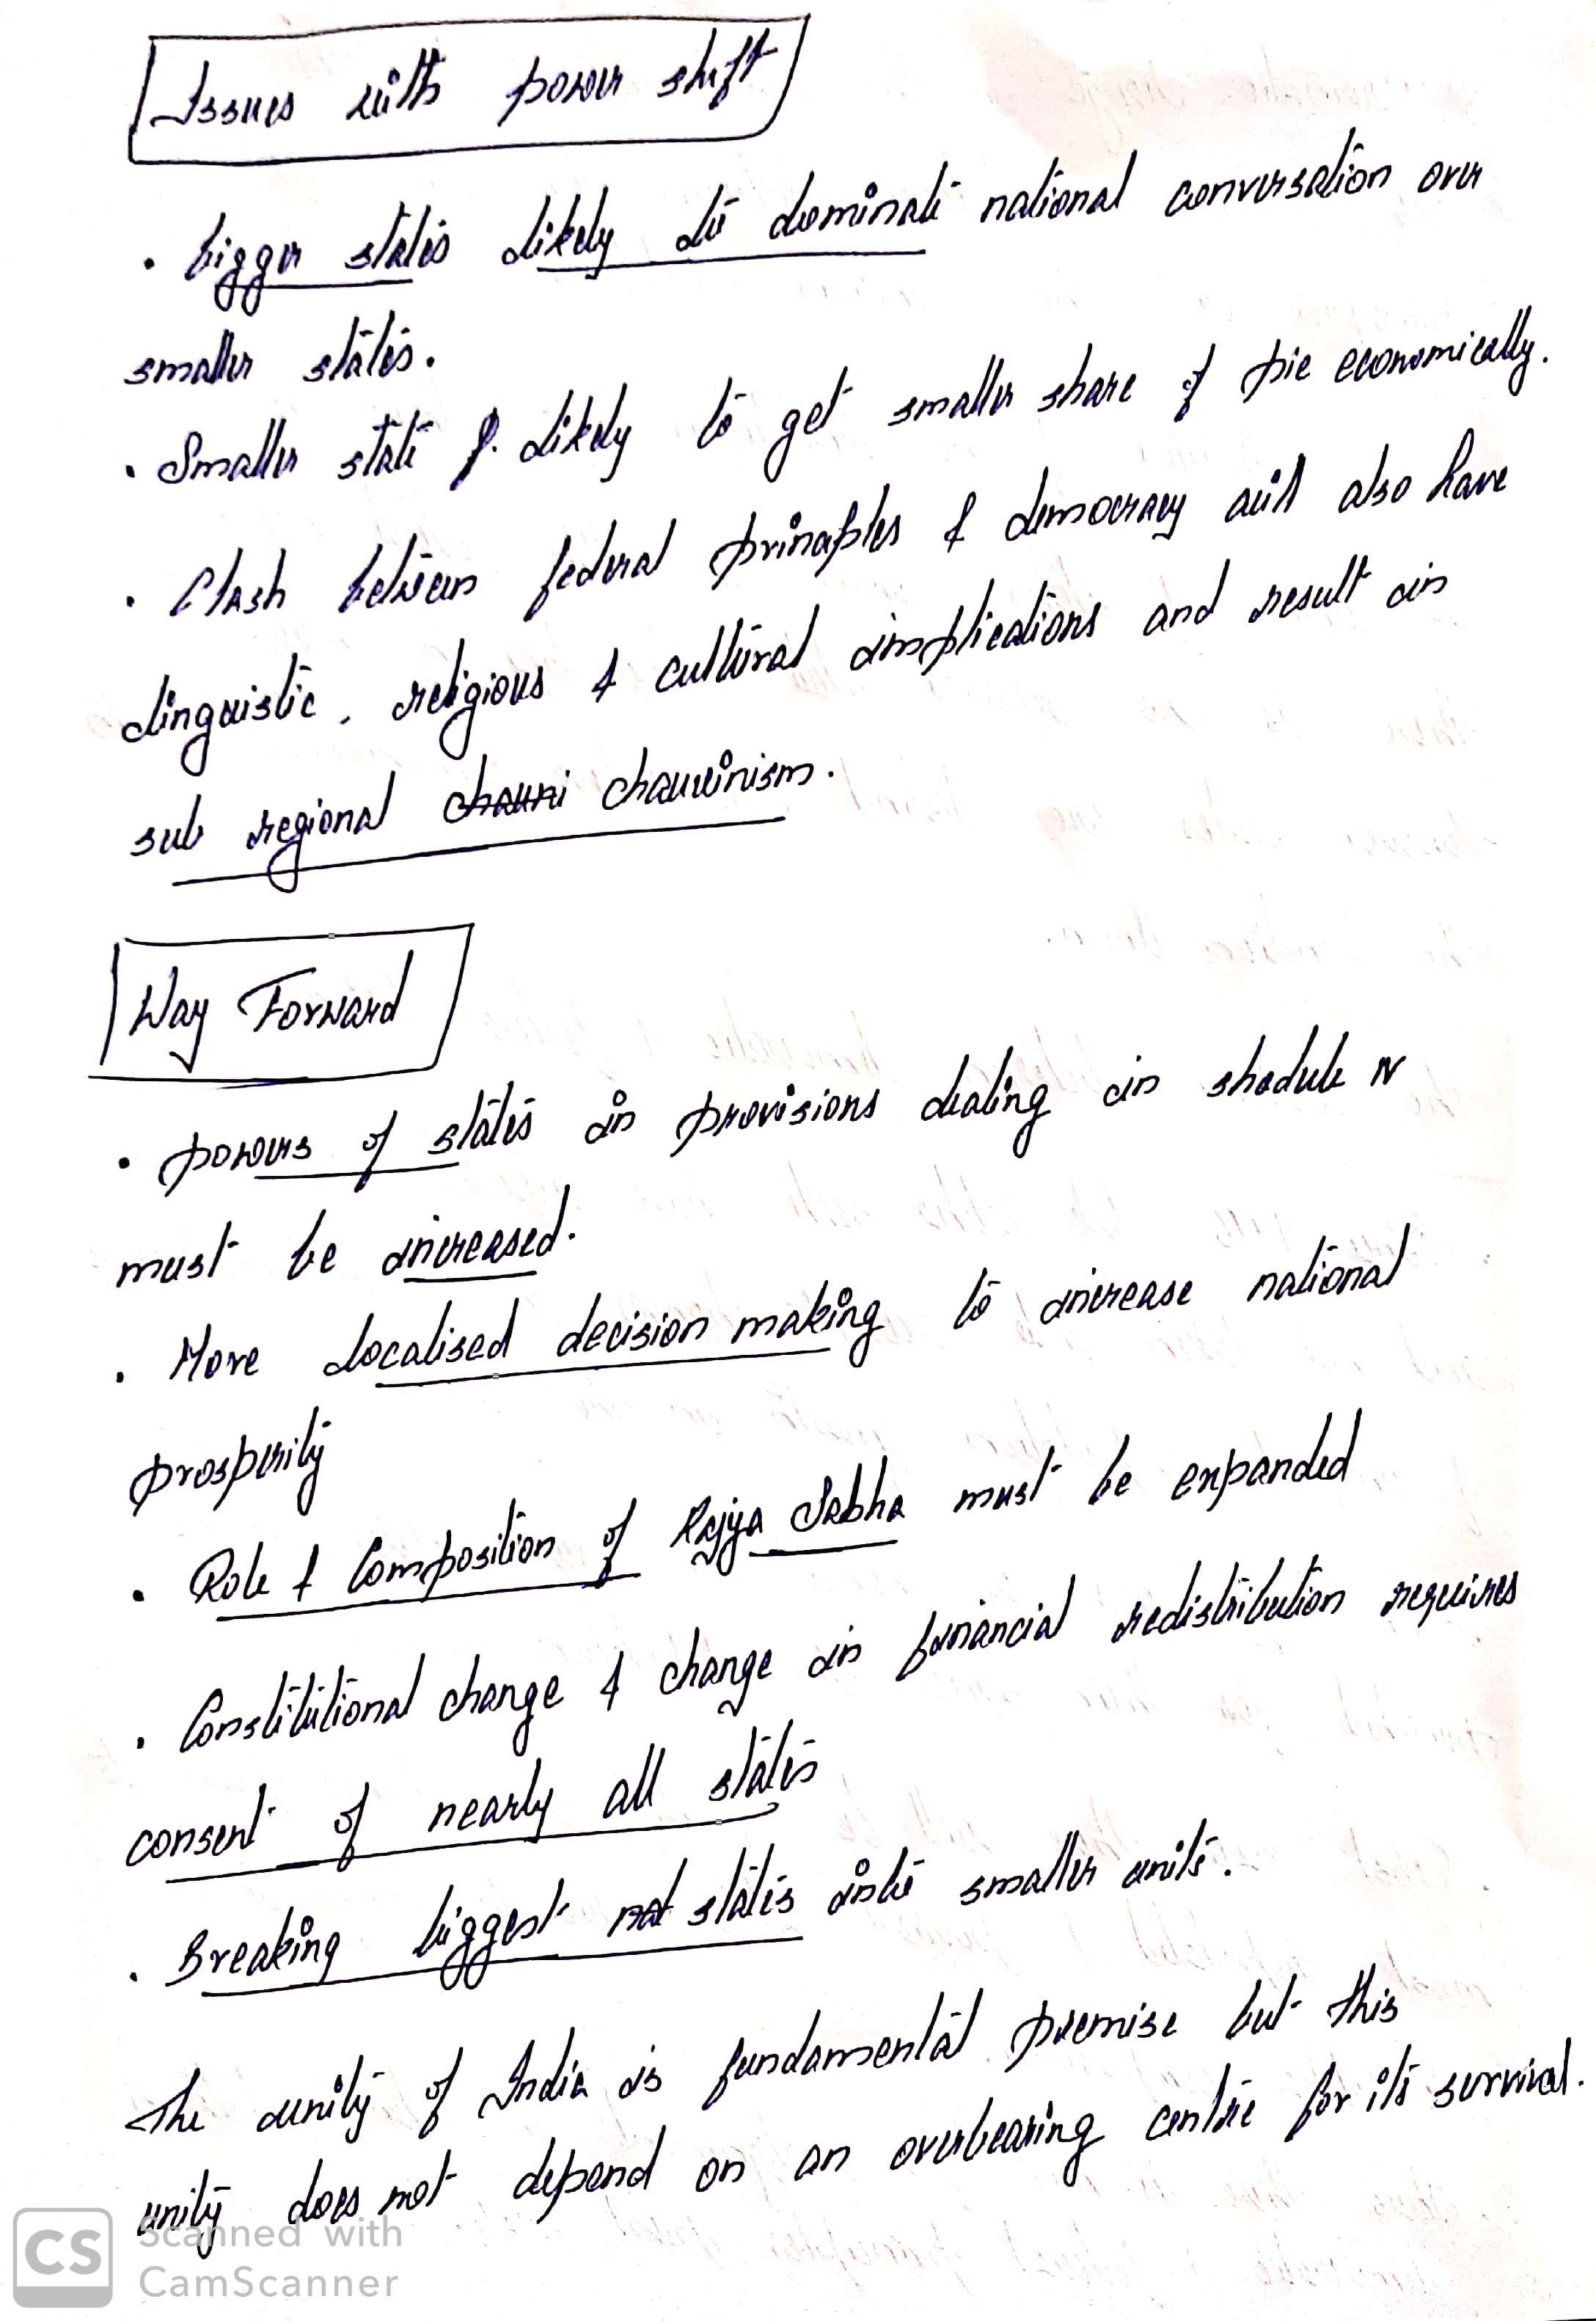 Issues with power shift
• bigger states likely to dominate national conversation over
smaller states.
• Smaller state likely to get smaller share of pie economically.
• Clash between federal principles & democracy will also have
linguistic, religious & cultural implications and result in
sub regional chauvinism.
Way Forward
• powers of states in provisions dealing in shedule IV
must be increased.
• More localised decision making to increase national
prosperity
• Role & Composition of Rajya Sabha must be expanded
• Constitutional change & change in financial redistribution requires
consent of nearly all states
• Breaking biggest states into smaller units.
The unity of India is fundamental premise but this
unity does not depend on an overbearing centre for its survival.
CS Scanned with
CamScanner